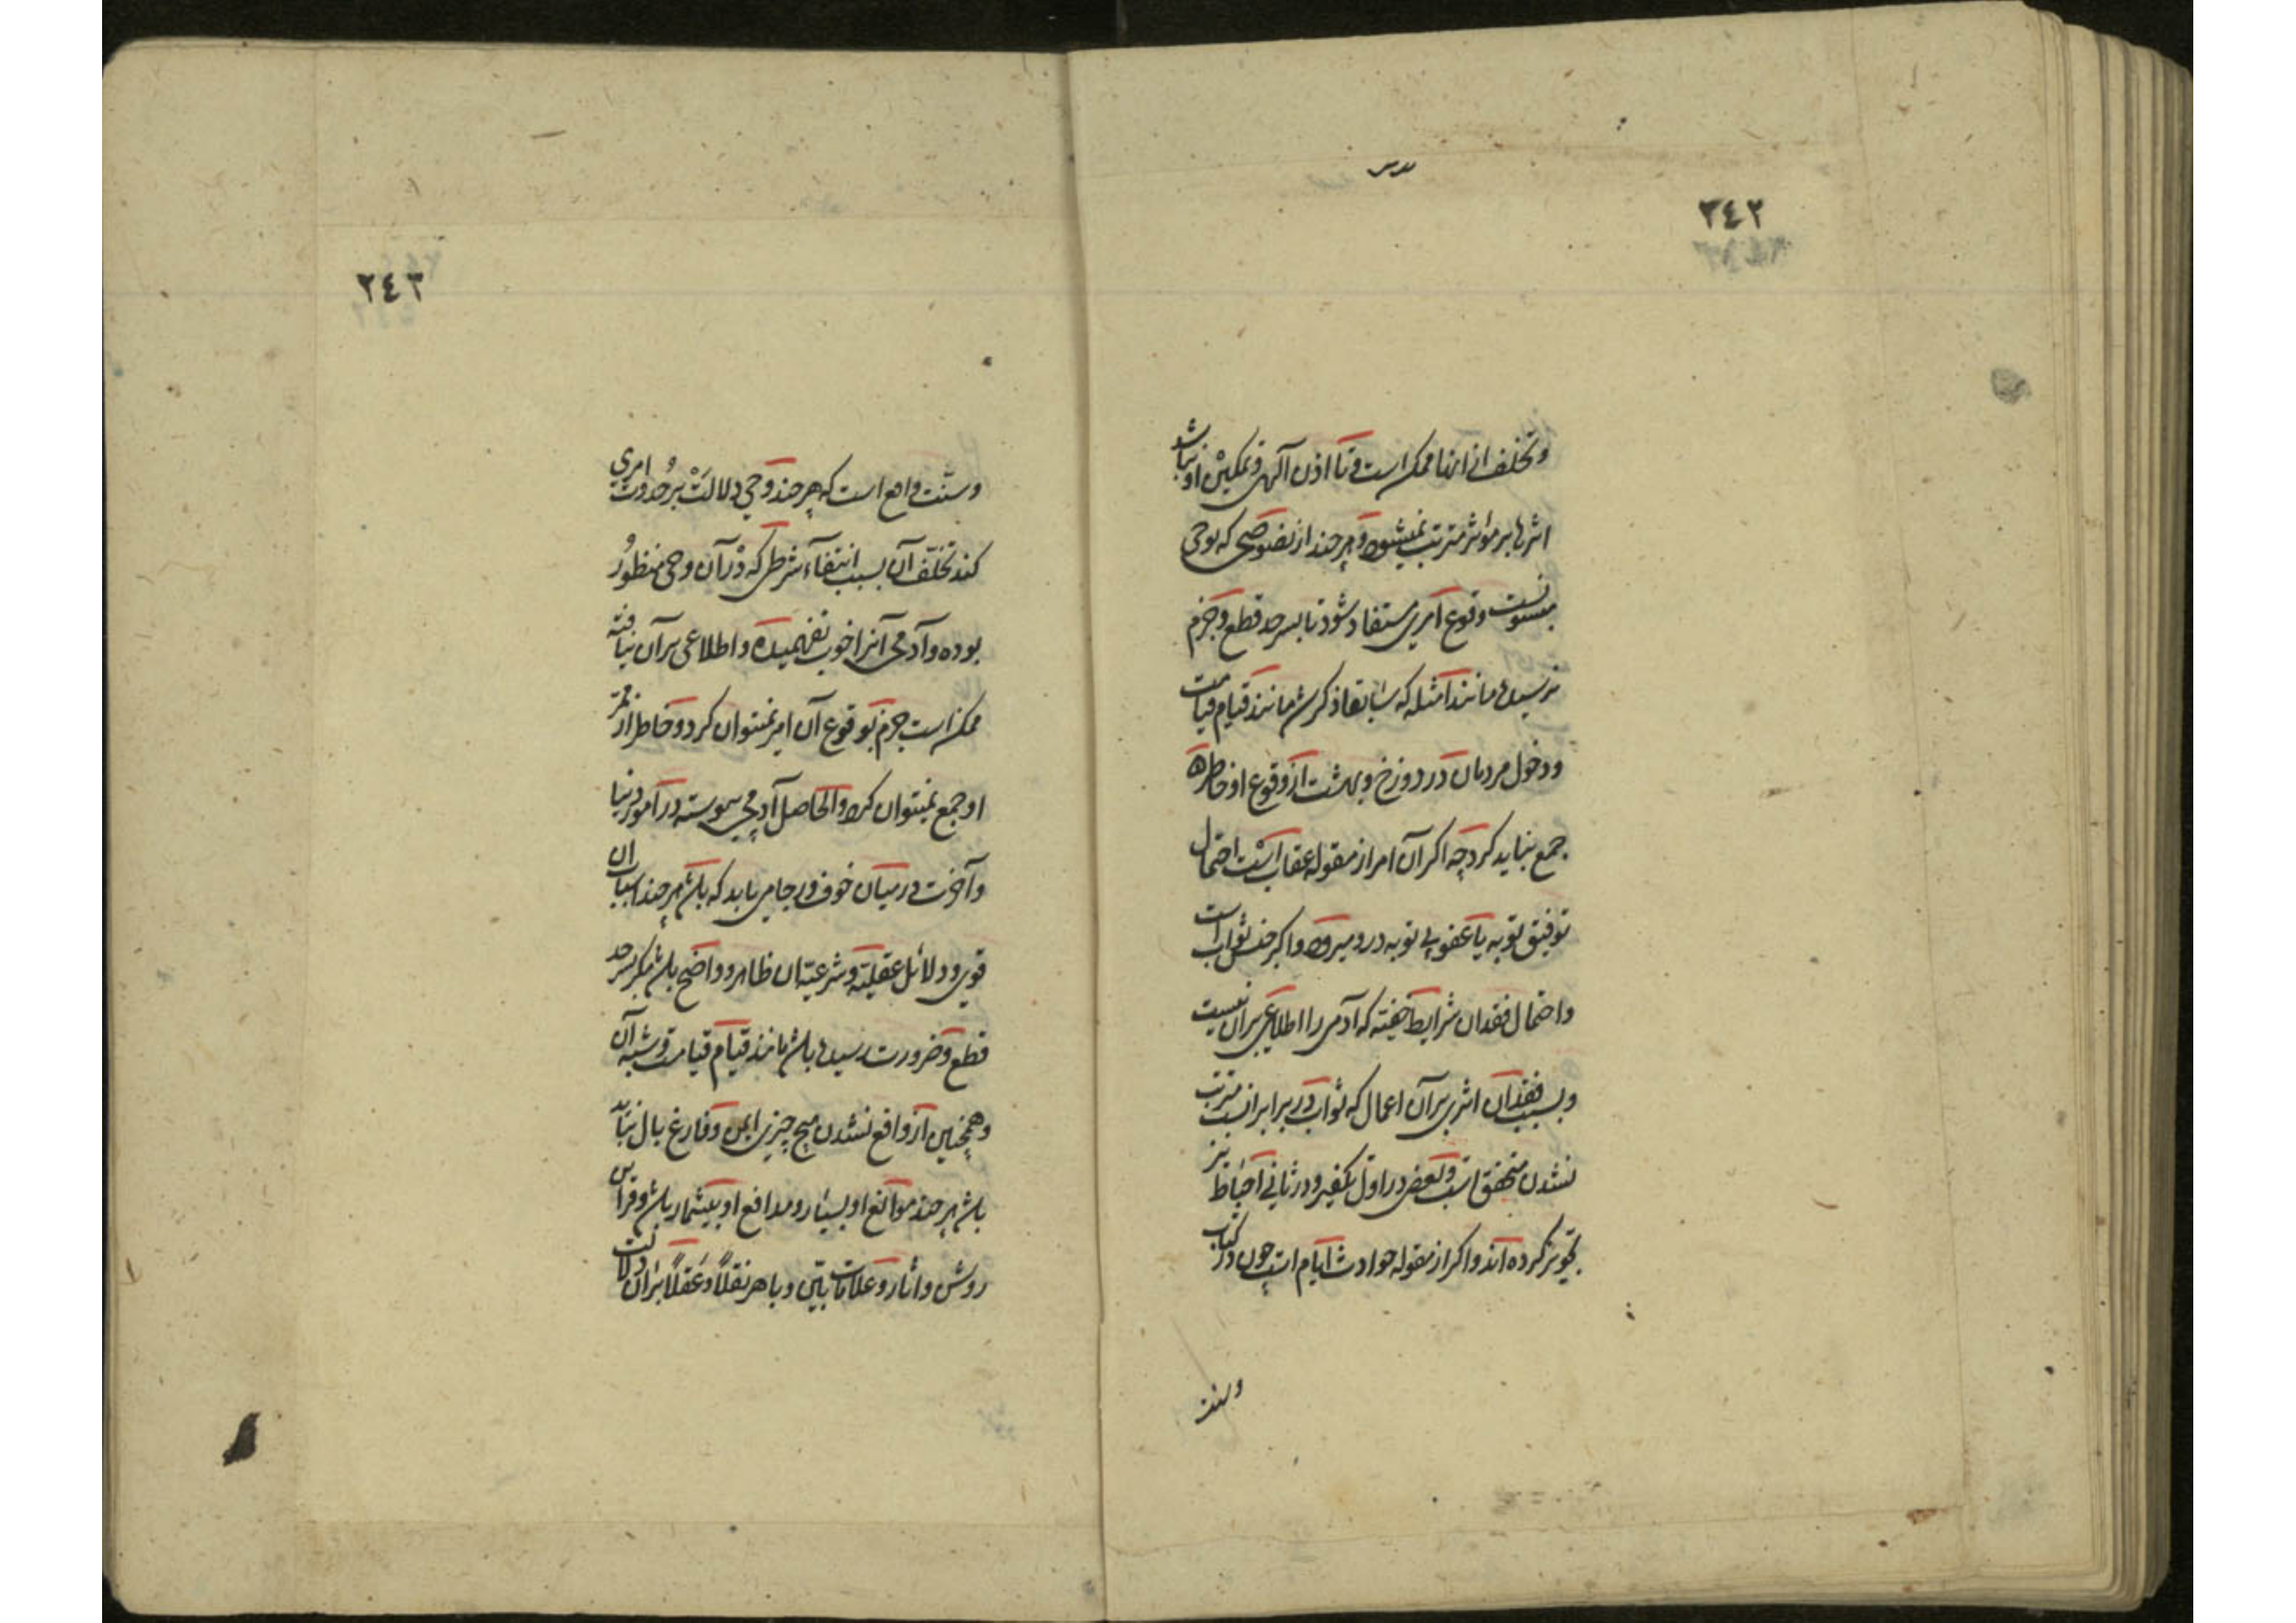 ٢٤٢
و تخلف از اینها ممکن است و تا اذن آلهی و تمکین او نباشد
اثرها بر مؤثر مترتب نمیشود و هر چند از نصوصی که بوحی
منسوبست وقوع امری مستفاد شود تا بسرحد قطع و جزم
نرسیده مانند امثله که سابقا ذکر شد مانند قیام قیامت
و دخول مردمان در دوزخ و بهشت از وقوع او خاطر
جمع نباید کرد چه اگر آن امر از مقوله عقاب است احتمال
توفیق توبه یا عفو بی توبه در و میرود و اگر جنس ثواب است
و احتمال فقدان شرایط خفیه که آدمی را اطلاعی بر آن نیست
و بسبب فقدان اثری بر آن اعمال که ثواب در برابر آنست مترتب
نشدن متحقق است و بعضی در اول تکفیر و در ثانی احباط نیز
تجویز کرده اند و اگر از مقوله حوادث ایام است چون در کتاب
و سنت
٢٤٣
و سنت واقع است که هر چند وحی دلالت بر حدوث امری
کند تخلف آن بسبب انتفاء شرطی که در آن وحی منظور
بوده و آدمی آنرا خوب نفهمیده و اطلاعی بر آن نیافته
ممکن است جزم بوقوع آن امر نمیتوان کرد و خاطر از
او جمع نمیتوان کرد و الحاصل آدمی پیوسته در امور دنیا
و آخرت در میان خوف و رجا می باید که باشد هر چند اسباب آن
قوی و دلائل عقلیته و شرعیته آن ظاهر و واضح باشد مگر بسرحد
قطع و ضرورت رسیده باشد مانند قیام قیامت و شبه آن
و همچنین از واقع نشدن هیچ چیزی ایمن و فارغ بال نباید
باشد هر چند موانع او بسیار و مدافع او بیشمار باشد و قراین
روشن و اثار و علامات بیّن و باهر نقلاً و عقلاً بر آن دلالت